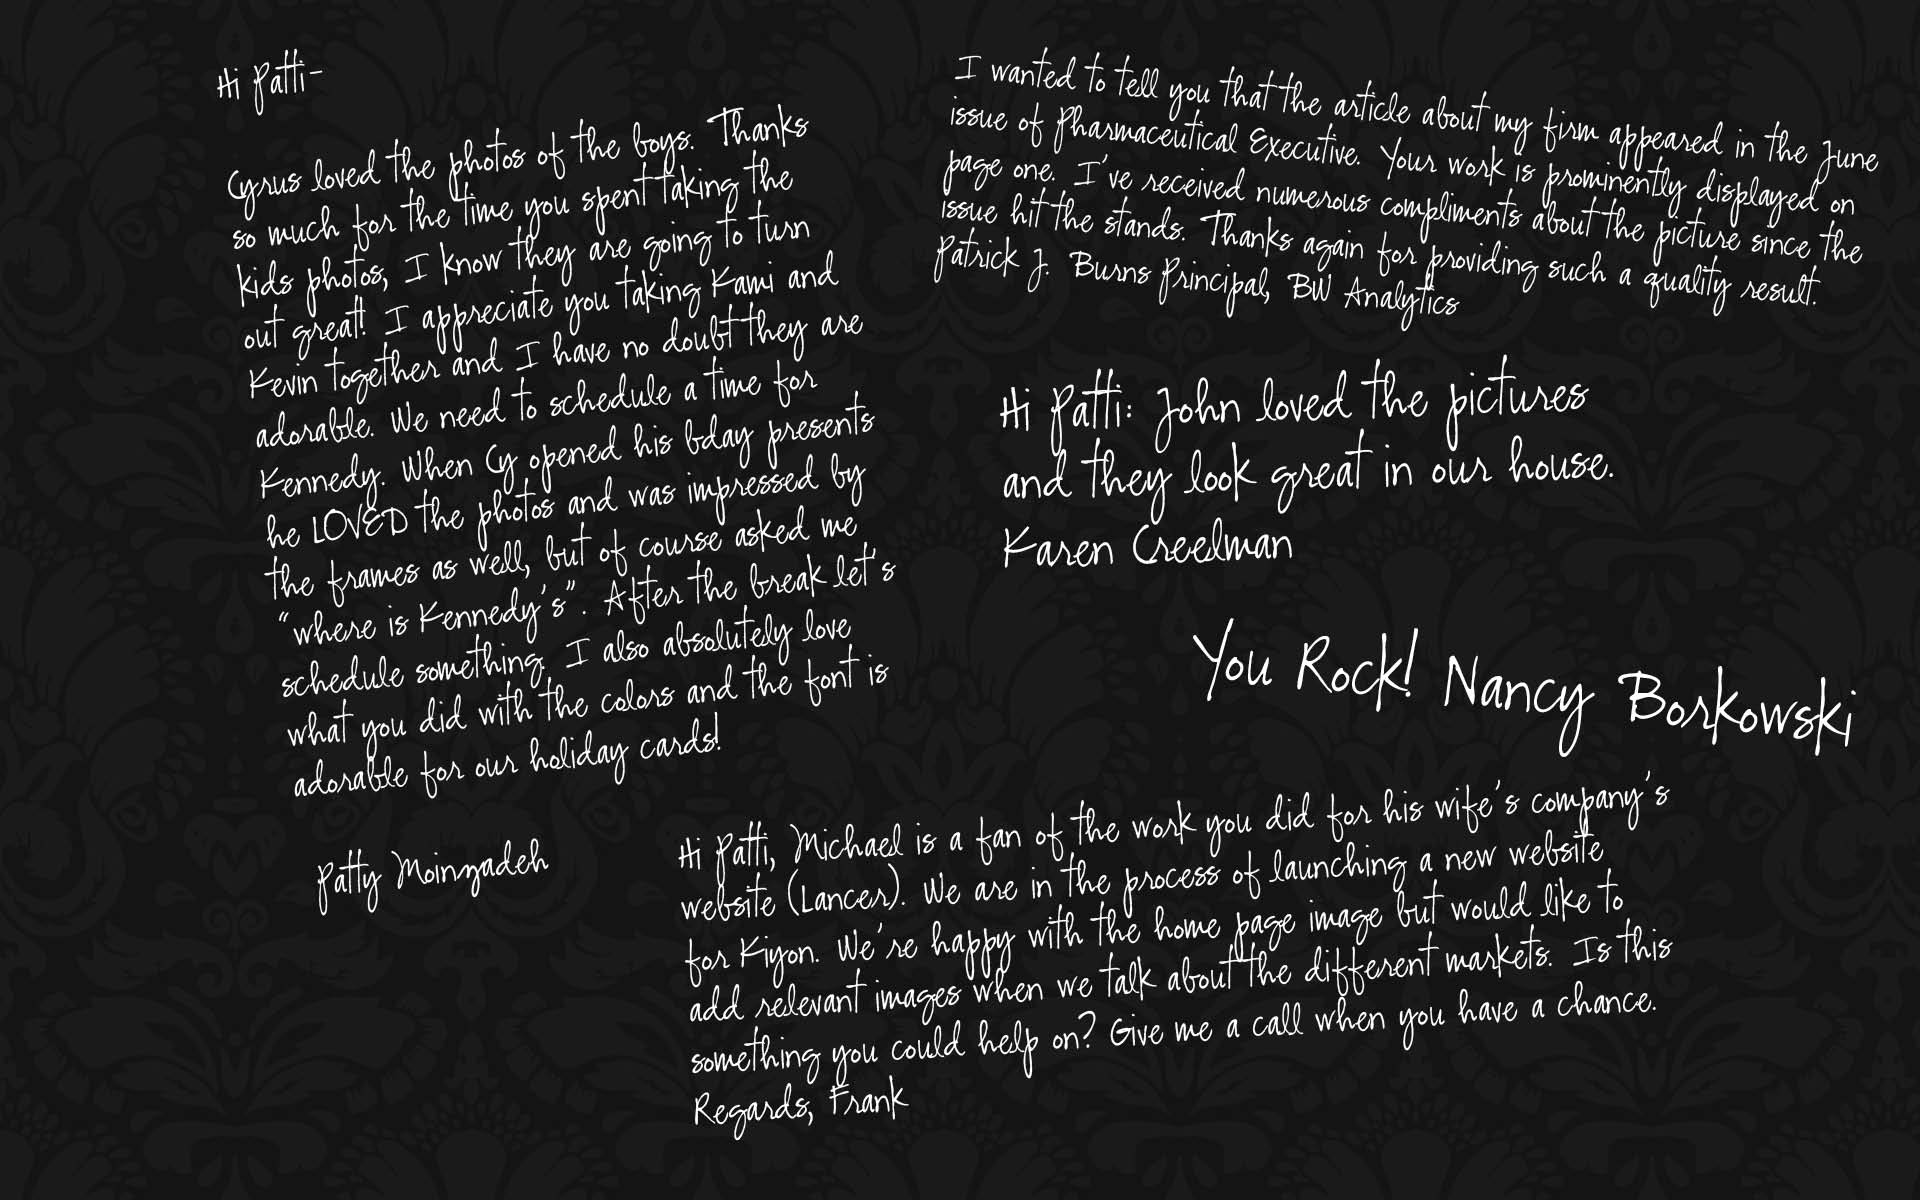 Hi Patti-
Cyrus loved the photos of the boys. Thanks
so much for the time you spent taking the
kids photos, I know they are going to turn
out great! I appreciate you taking Kami and
Kevin together and I have no doubt they are
adorable. We need to schedule a time for
Kennedy. When Cy opened his bday presents
he LOVED the photos and was impressed by
the frames as well, but of course asked me
"where is Kennedy's". After the break let's
schedule something. I also absolutely love
what you did with the colors and the font is
adorable for our holiday cards!
Patty Moinzadeh
I wanted to tell you that the article about my firm appeared in the June
issue of Pharmaceutical Executive. Your work is prominently displayed on
page one. I've received numerous compliments about the picture since the
issue hit the stands. Thanks again for providing such a quality result.
Patrick J. Burns Principal, BW Analytics
Hi Patti: John loved the pictures
and they look great in our house.
Karen Creelman
You Rock! Nancy Borkowski
Hi Patti, Michael is a fan of the work you did for his wife's company's
website (Lancer). We are in the process of launching a new website
for Kiyon. We're happy with the home page image but would like to
add relevant images when we talk about the different markets. Is this
something you could help on? Give me a call when you have a chance.
Regards, Frank